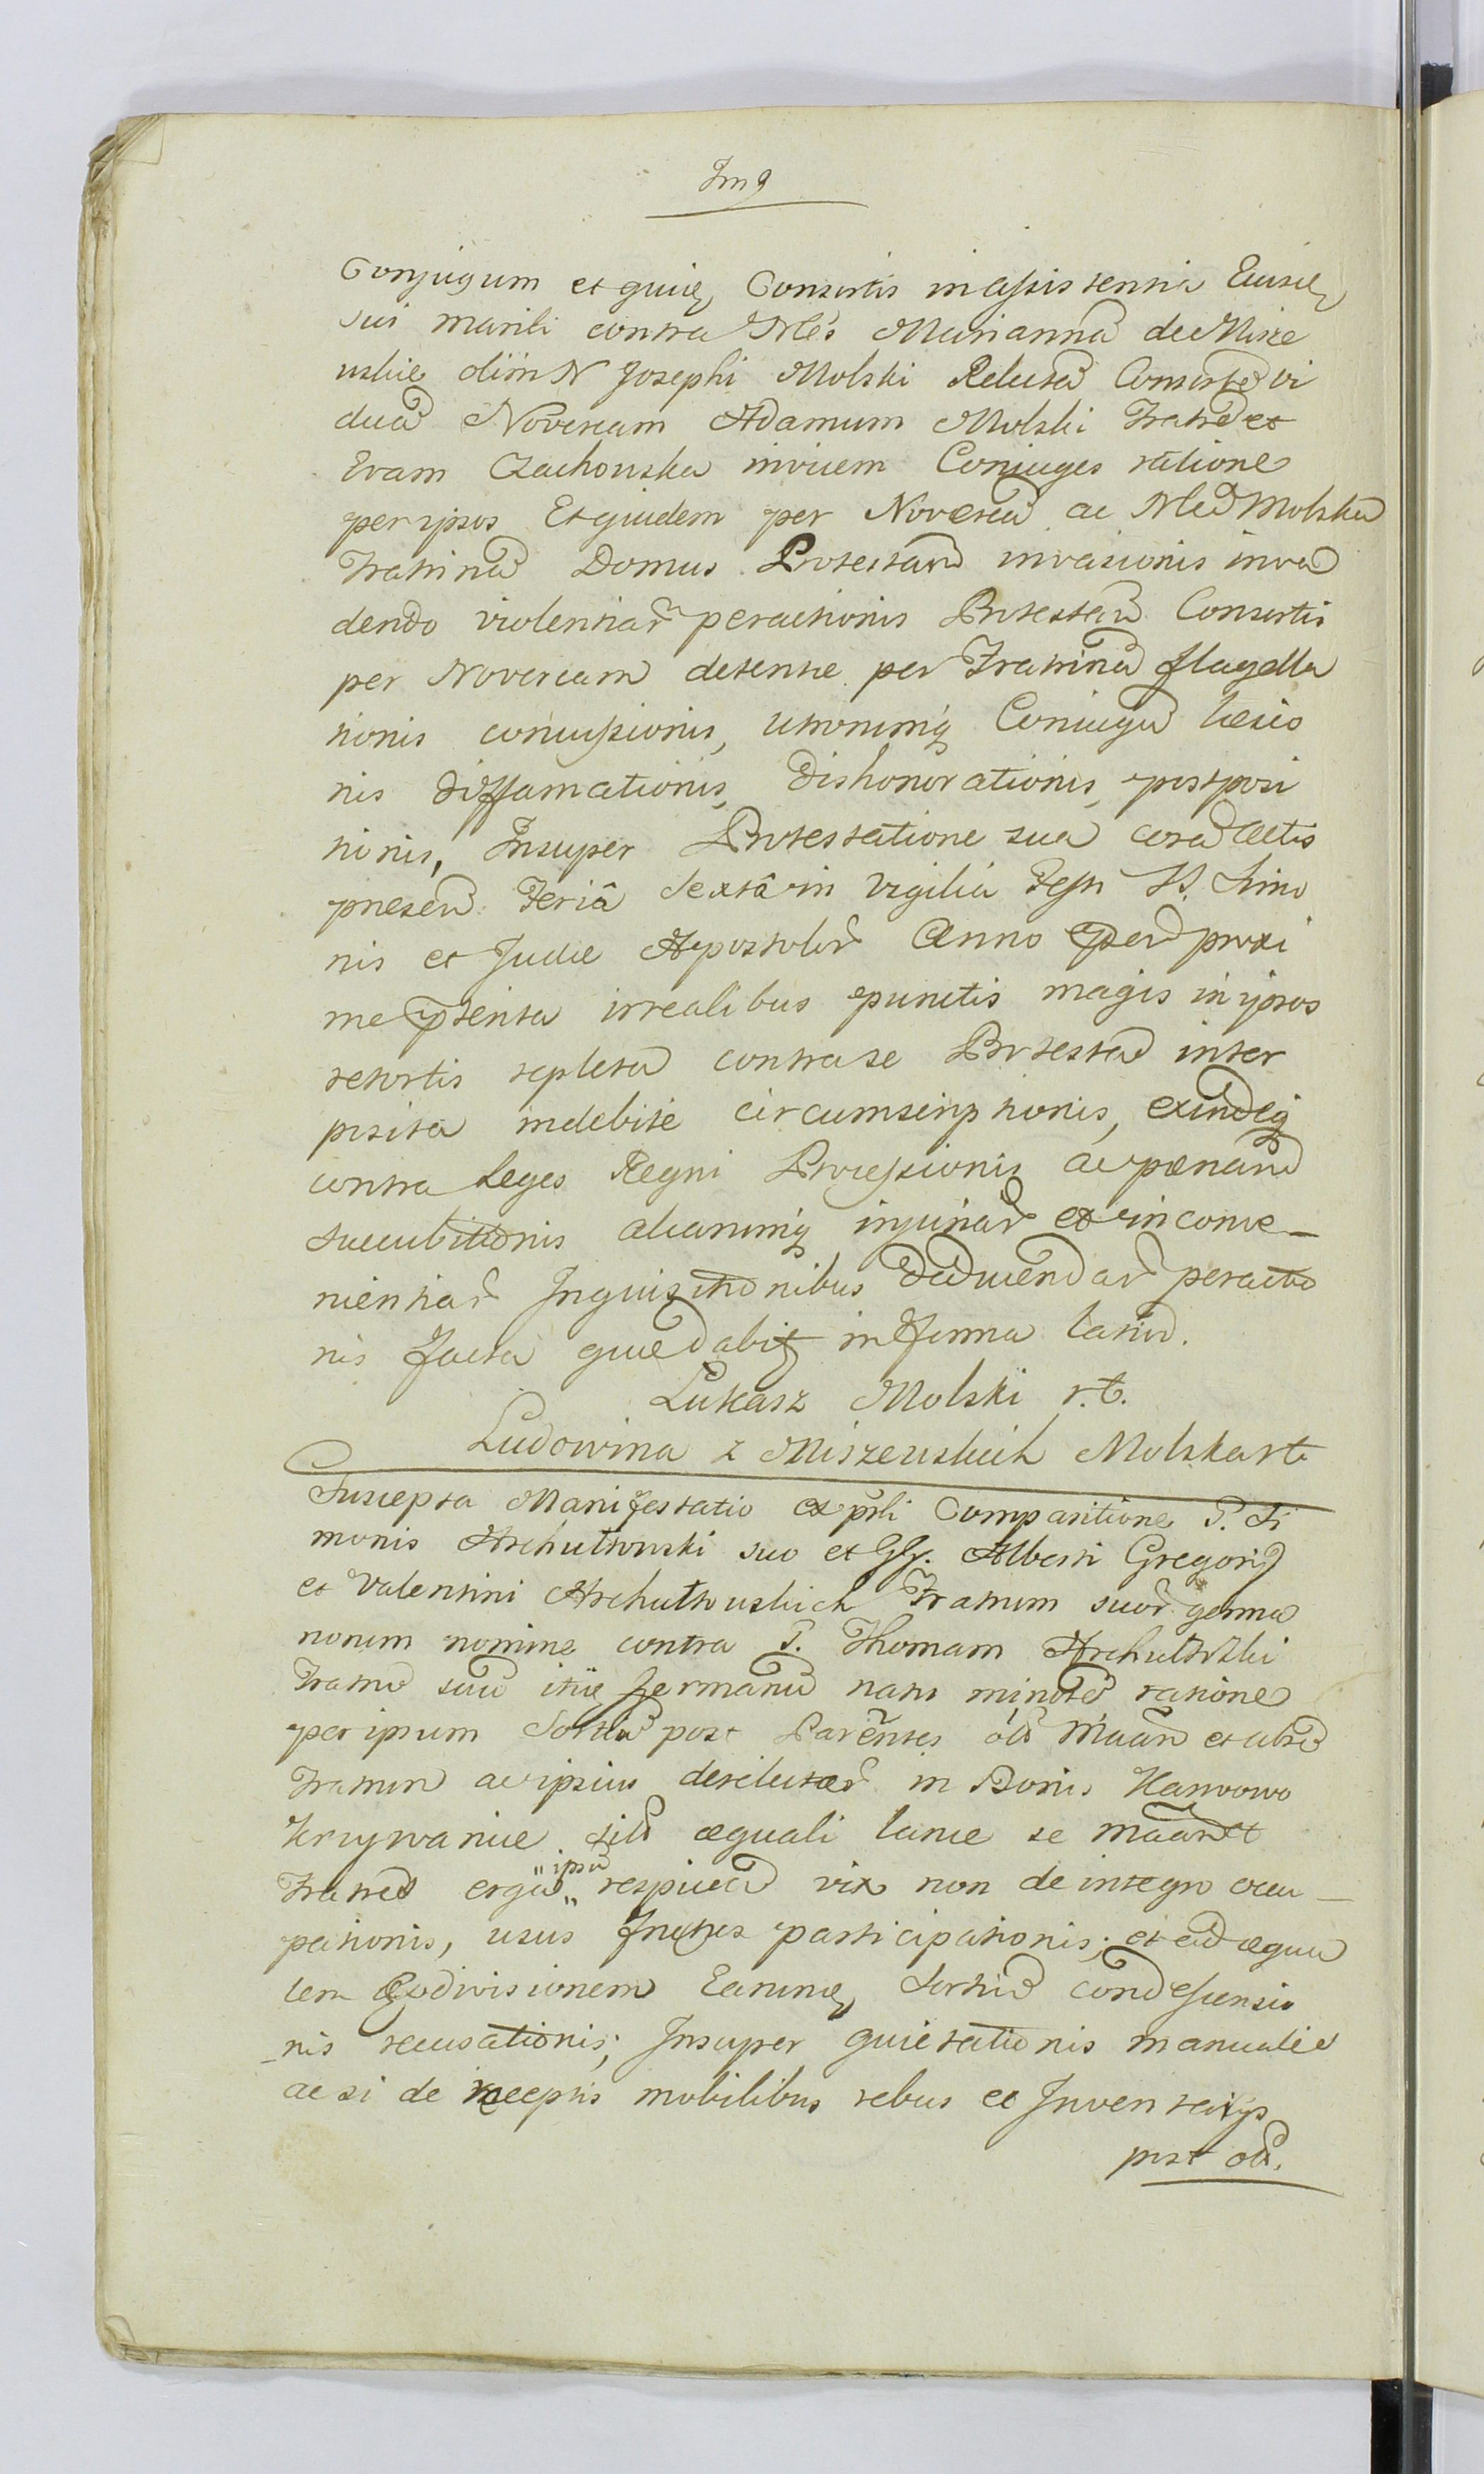 Img
Conjugum et quidē Consortis in assistentia Eiusdē
sui mariti contra Nles Mariannā de Misze
wskie olim N Josephi Molski Relictā Consortē vi
duā Novercam Adamum Molski Fratrē et
Evam Czachowska invicem Conjuges ratione
per ipsos Et quidem per Novercā ac Nlē Molskā
Fratrinā Domus Protestanē invasionis inva
dendo violentiar peractionis Protestanē Consortis
per Novercam detentae per Fratrinā flagella
tionis concussionis, utrorumq Coniugū laesio
nis diffamationis, dishonorationis, postposi
tionis, Insuper Protestatione sua corā Actis
presenē Feriâ Sextâ in Vigilia Festi SS. Simo
nis et Judae Apostolor Anno proxi
me irrealibus punctis magis in ipsos
retortis repletā contra se Protestanē inter
posita indebite circumscriptionis, exindeq
contra Leges Regni Processionis ac paenarū
succubitionis aliarumq injuriar et inconve-
nientiar Inquisitionibus deducendar peractio
nis facta quae dabit in forma latiū.
Lukasz Molski r.t.
Ludowina z Miszewskich Molska rt
Suscepta Manifestatio ex prli Comparitione P. Si
monis Archutowski suo et GG. Alberti Gregorij
et Valentini Archutowskich Fratrum suor germa
norum nomine contra P. Thomam Archutowski
Fratrē suū itidē germanū natu minorē ratione
per ipsum Sortiū post Parentes olī Maar et
Fratrum ac ipsius derelictar in Bonis Karwowo
Krzywanice sitī aequali lance se Maar et
Fratres erga "ipsū" respiciē vix non de integro occu-
pationis, usus fructus participationis; et ad aequa
lem Exdivisionem Earundē Sortiū condescensio
-nis recusationis; Insuper quietationis manualis
ac si de receptis mobilibus rebus et Inventarijs
post olī.